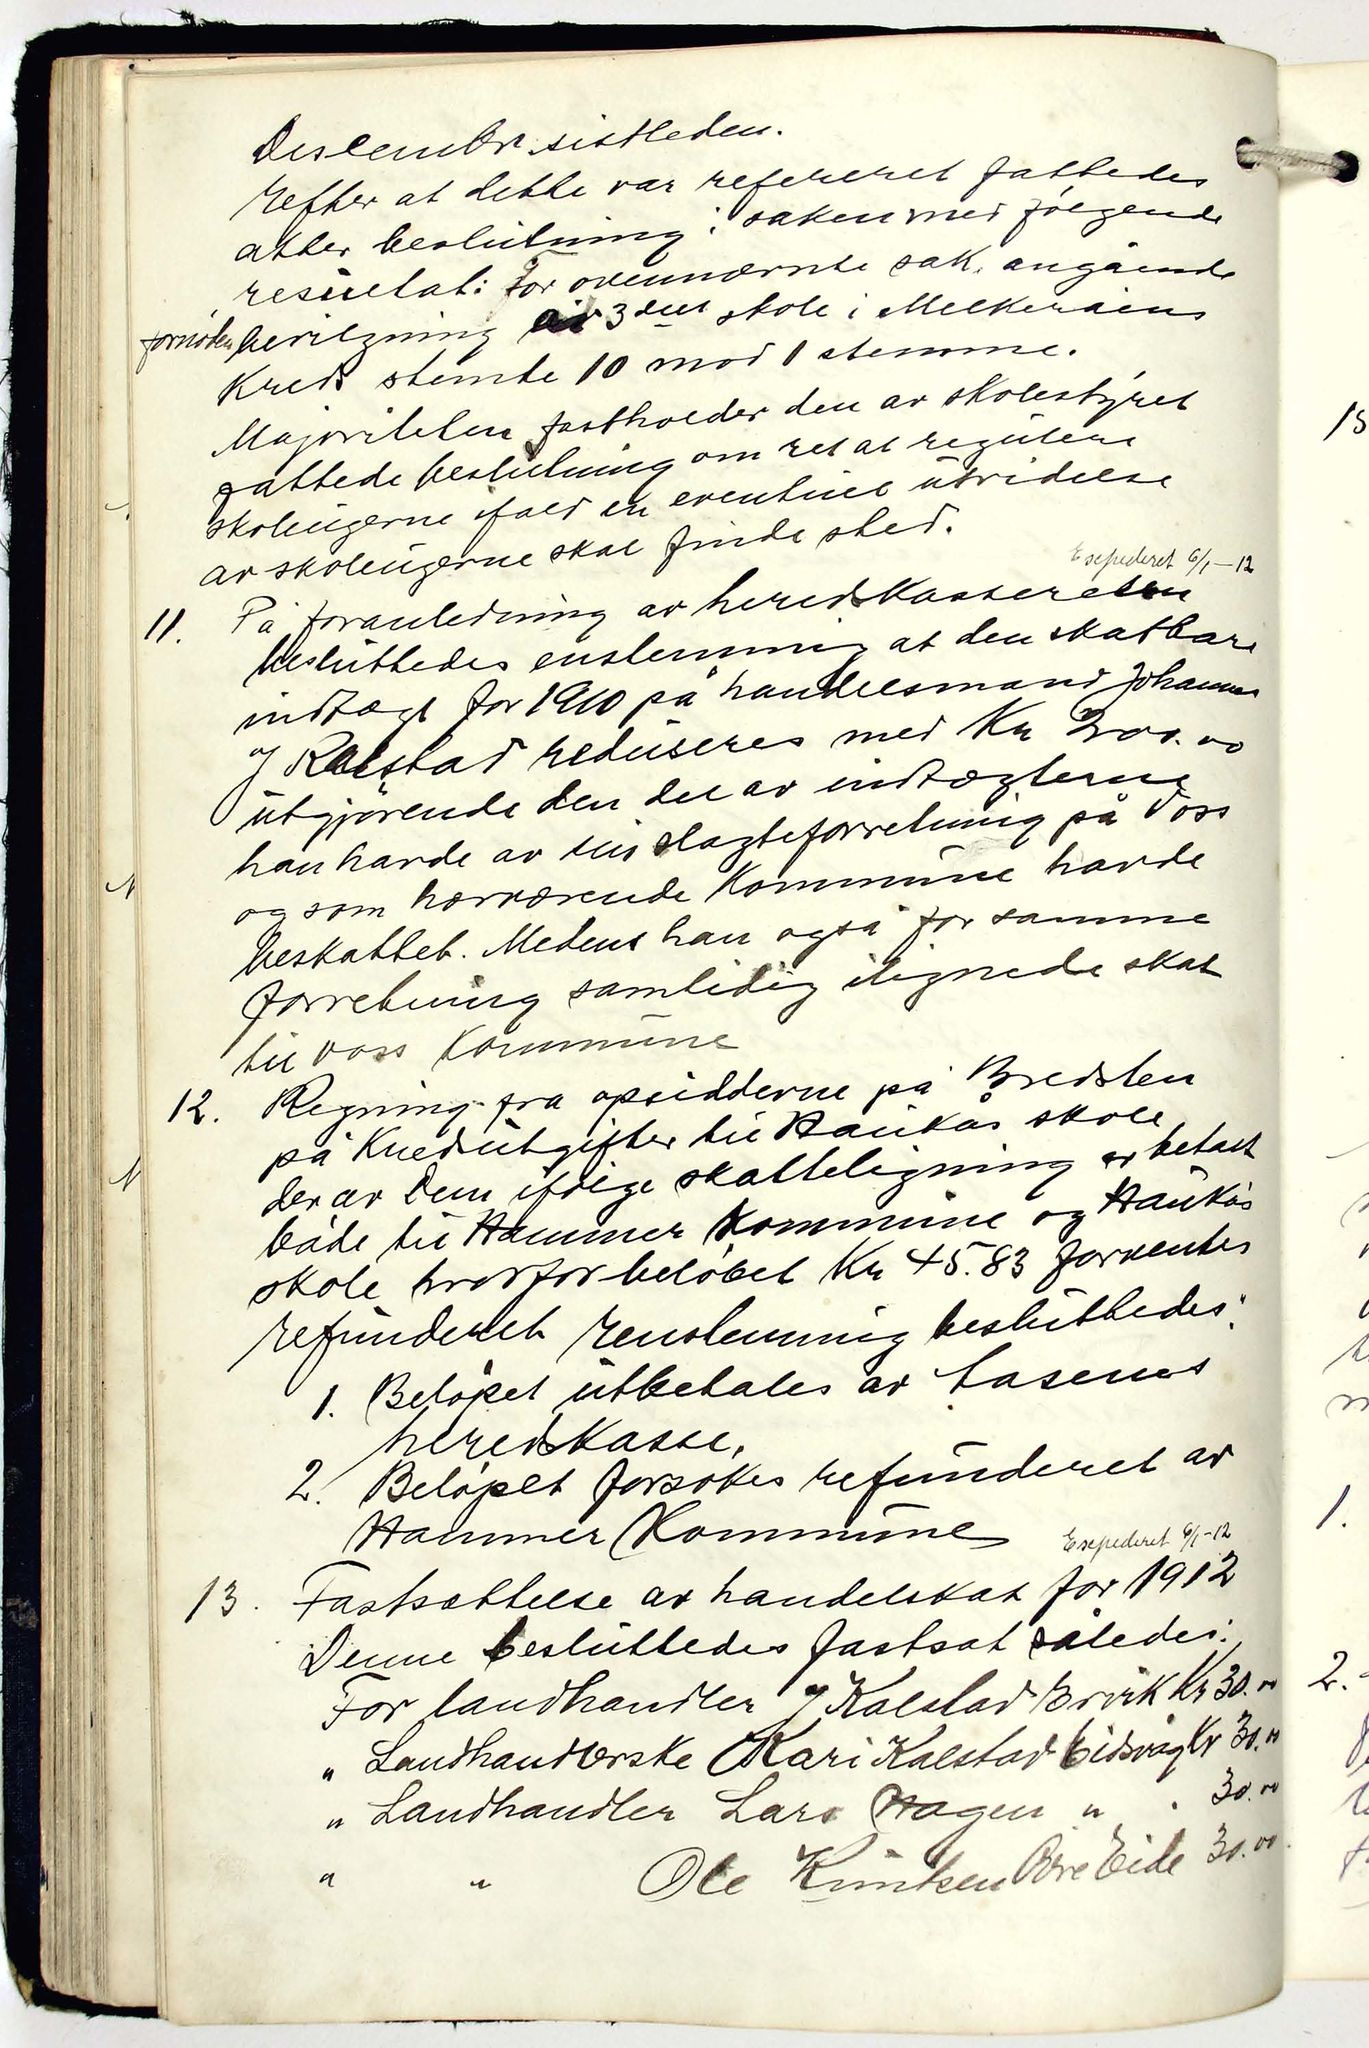 Descembr sistleden.
Efter at dette var refereret fattedes
atter beslutning i saken med følgende
resultat: For ovennævnte sak, angående
fornøden bevilgning av 3die skole i Melkeråens
Kreds stemte 10 mod 1 stemme.
Majoriteten fastholder den av skolestyret
fattede beslutning om ret at regulere
skoleugerne ifald en eventuel utvidelse
av skoleugerne skal finde sted.
Exepederet 6/1-12
11. På foranledning av heredskassereren
besluttedes enstemmig at den skatbare
indtægt for 1910 på handelsmand Johannes
J Kalstad reduseres med Kr 200.00
utgjörende den del av indtægterne
han havde av sin slagteforretning på Voss
og som herværende Kommune havde
beskattet. Medens han også for samme
forretning samtidig ilignede skat
til Voss Kommune
12. Regning fra opsidderne på Bredsten
på Kredsutgifter til Haukås skole
der av Dem ifølge skatteligning er betalt
både til Hammer Kommune og Haukås
skole hvorfor beløbet Kr 45.83 forventes
refunderet Enstemmig besluttedes:
1. Beløpet utbetales av Aasenes
heredskasse.
2. Beløpet forsøkes refunderet av
Hammer Kommune
Exepederet 6/1-12
13. Fastsættelse av handelskat for 1912
Denne besluttedes fastsat således:
For landhandler J Kalstad Ervik Kr 30.00
" Landhandlerske Kari Kalstad Eidsvåg Kr 30.00
" Landhandler Lars Hagen " . 30.00
" " Ole Knutsen Øvre Eide 30.00
15
1.
2.